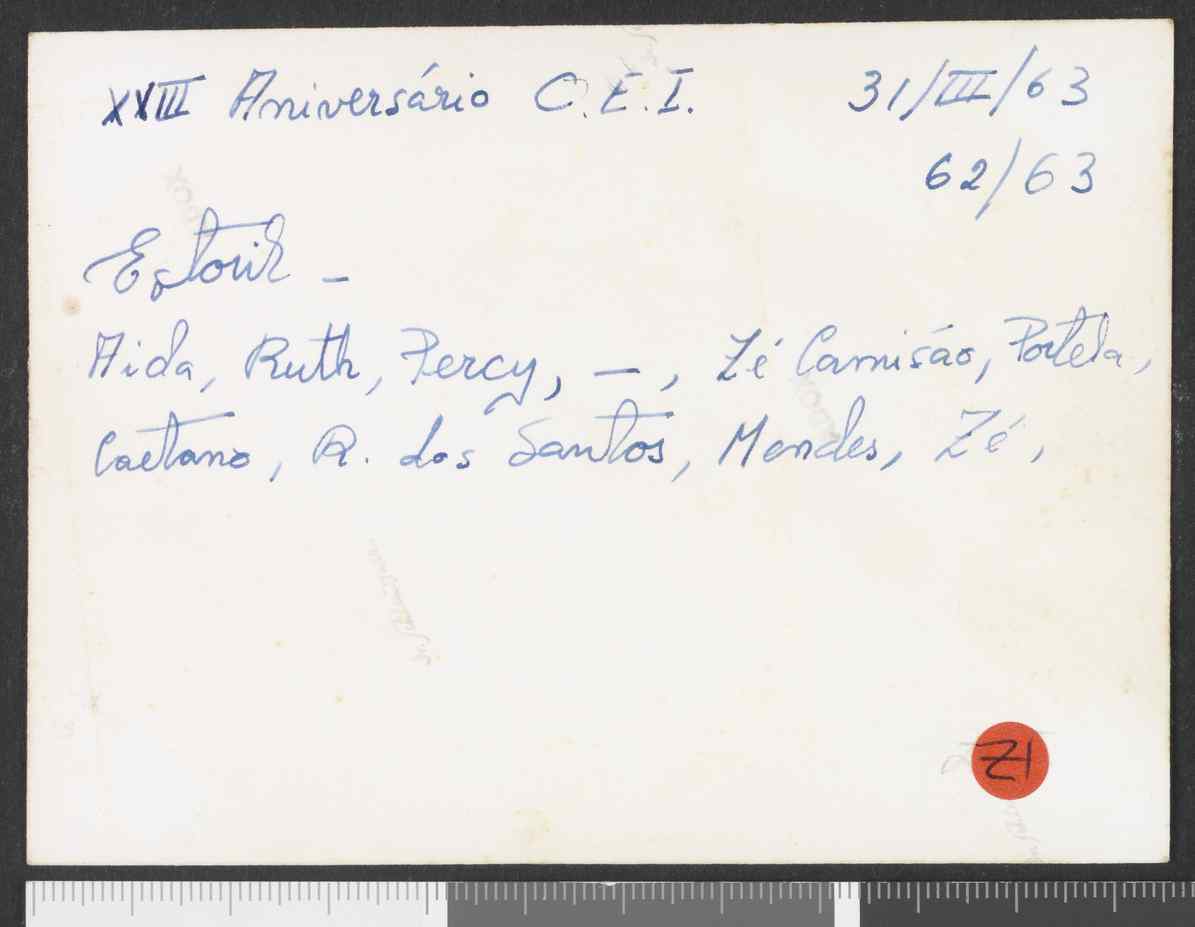 XXIII Aniversário C.E.I. 31/III/63
62/63
Estoril –
Aida, Ruth, Percy, – , Zé Camisão, Portela,
Caetano, R. dos Santos, Mendes, Zé,
Z1